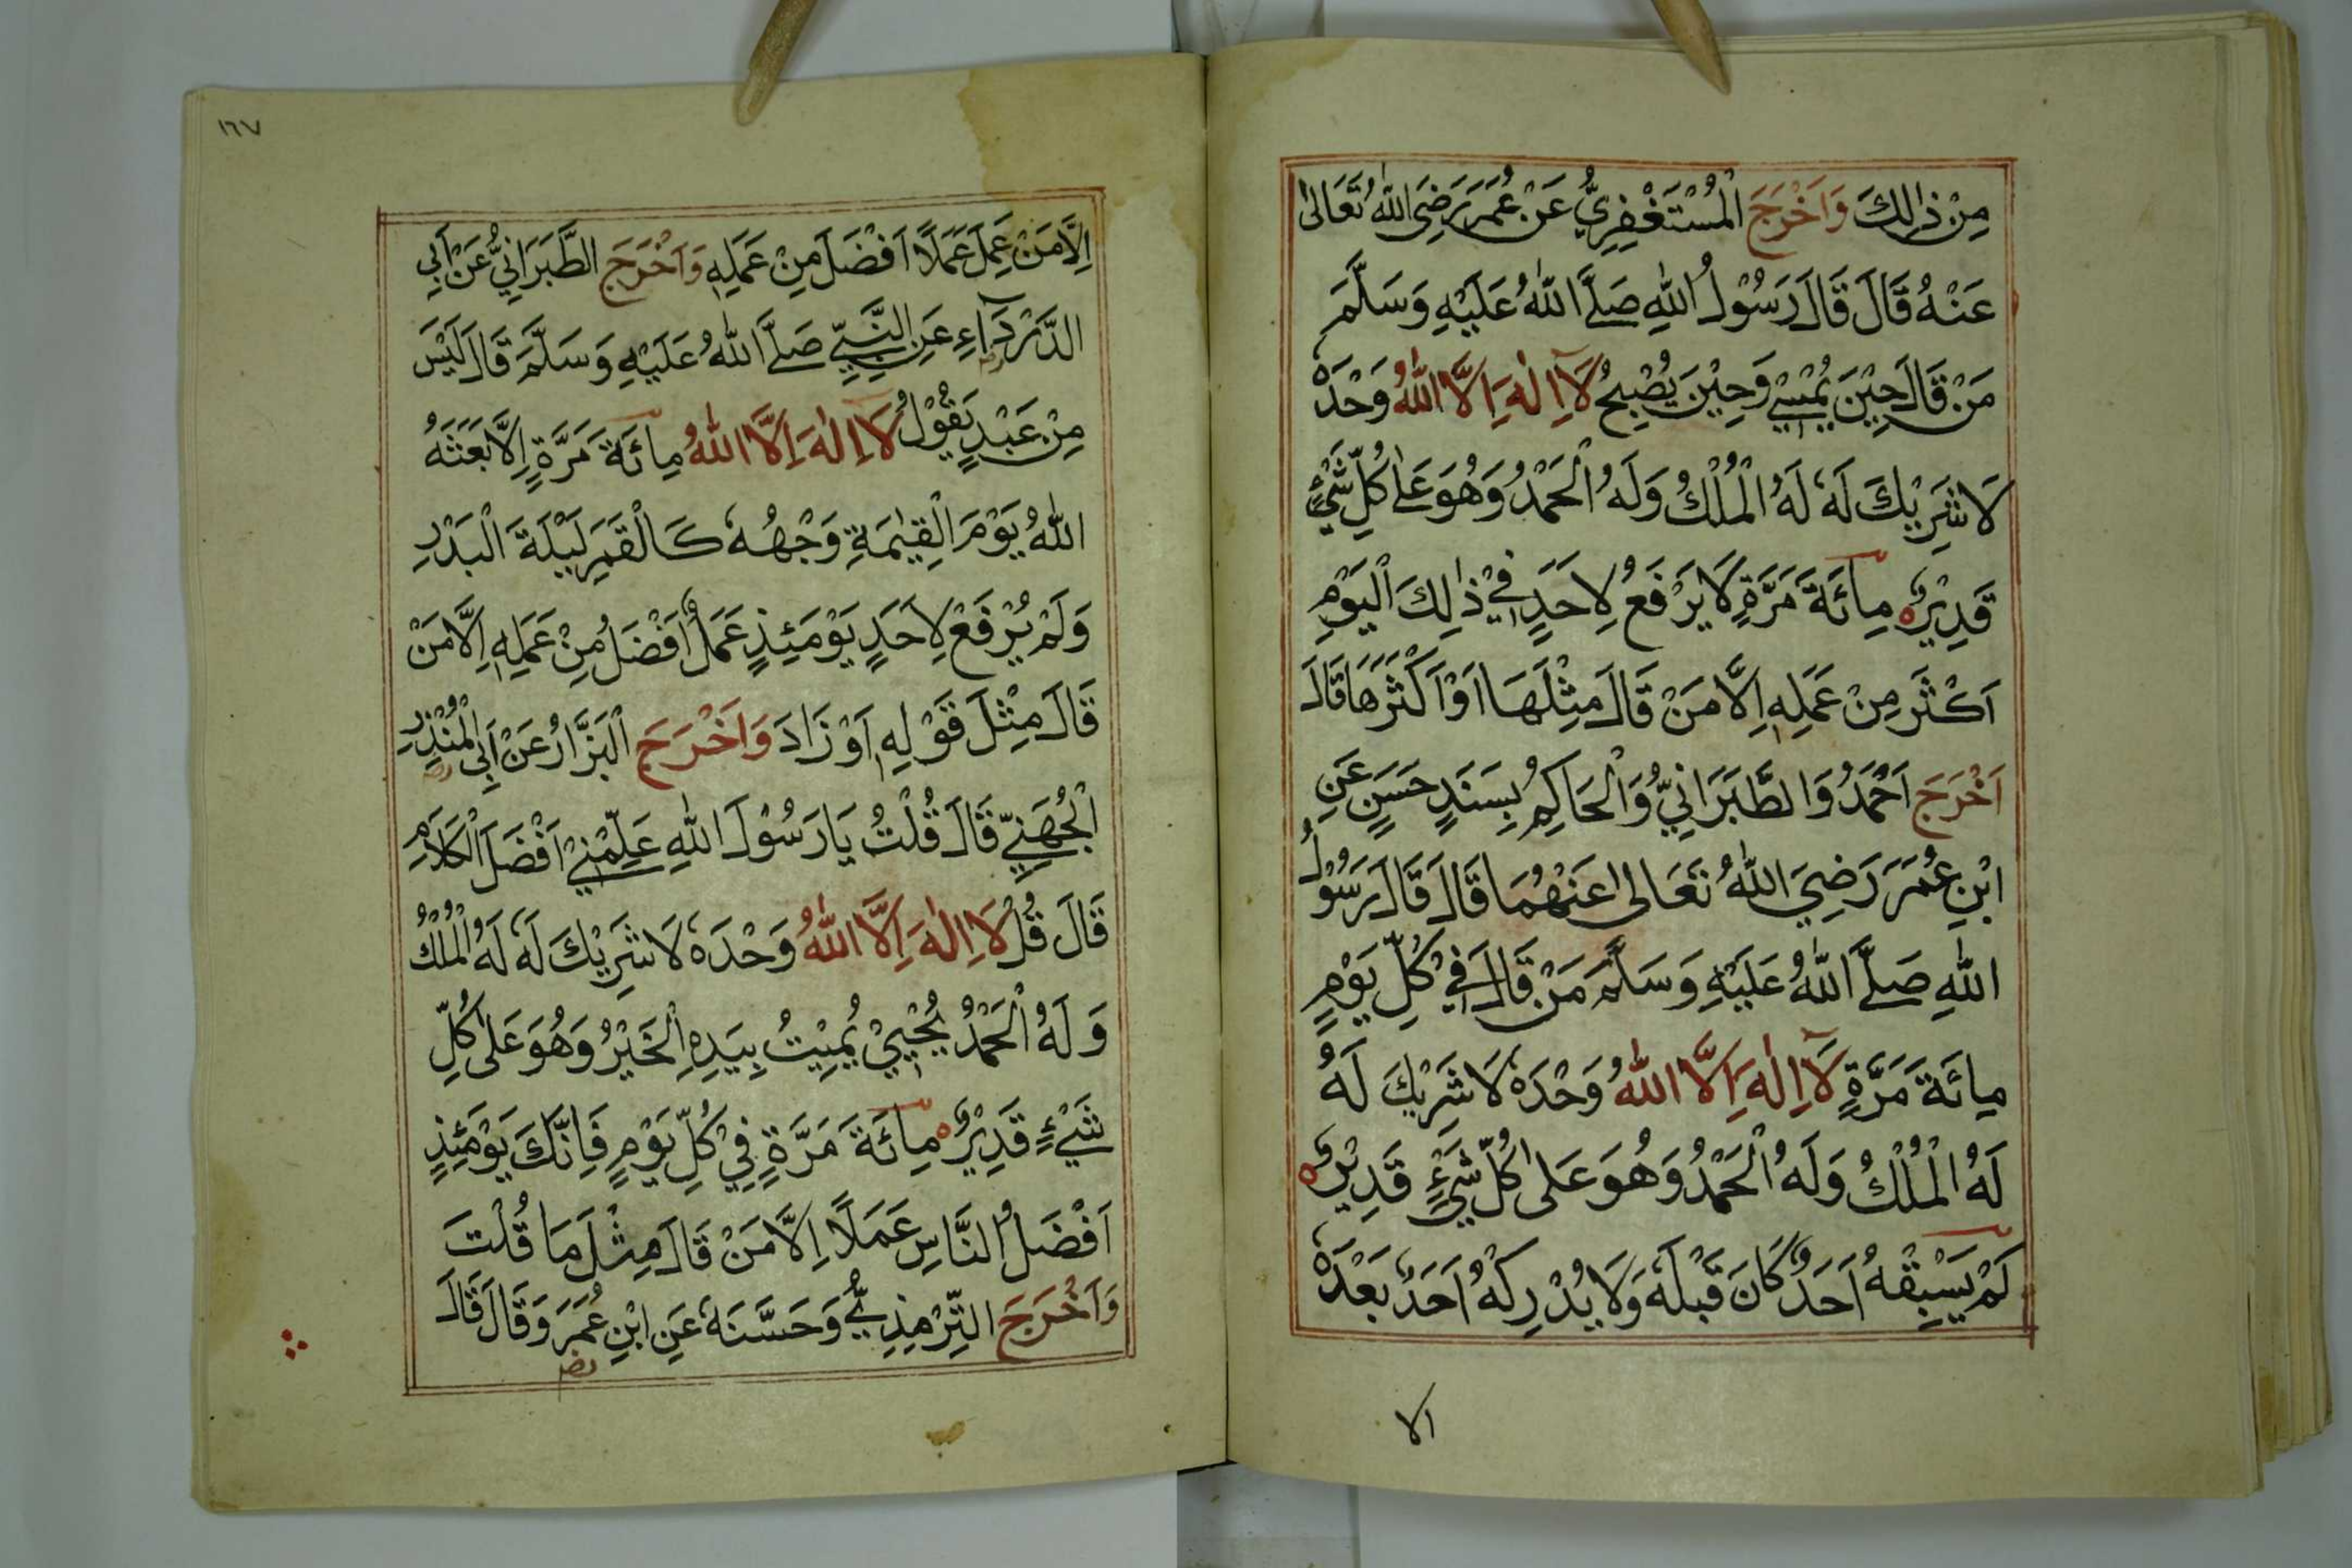 مِنْ ذٰلِكَ وَاَخْرَجَ الْمُسْتَغْفِرِيُّ عَنْ عُمَرَ رَضِيَ اللّٰهُ تَعَالٰى
عَنْهُ قَالَ قَالَ رَسُوْلُ اللّٰهِ صَلَّى اللّٰهُ عَلَيْهِ وَسَلَّمَ
مَنْ قَالَ حِيْنَ يُمْسِيْ وَحِيْنَ يُصْبِحُ لَآ اِلٰهَ اِلَّا اللّٰهُ وَحْدَهٗ
لَا شَرِيْكَ لَهٗ لَهُ الْمُلْكُ وَلَهُ الْحَمْدُ وَهُوَ عَلٰى كُلِّ شَيْءٍ
قَدِيْرٌ مِائَةَ مَرَّةٍ لَا يَرْفَعُ لِاَحَدٍ فِيْ ذٰلِكَ الْيَوْمِ
اَكْثَرَ مِنْ عَمَلِهٖ اِلَّا مَنْ قَالَ مِثْلَهَا اَوْ اَكْثَرَهَا قَالَ
اَخْرَجَ اَحْمَدُ وَالطَّبَرَانِيُّ وَالْحَاكِمُ بِسَنَدٍ حَسَنٍ عَنِ
ابْنِ عُمَرَ رَضِيَ اللّٰهُ تَعَالٰى عَنْهُمَا قَالَ قَالَ رَسُوْلُ
اللّٰهِ صَلَّى اللّٰهُ عَلَيْهِ وَسَلَّمَ مَنْ قَالَ فِيْ كُلِّ يَوْمٍ
مِائَةَ مَرَّةٍ لَآ اِلٰهَ اِلَّا اللّٰهُ وَحْدَهٗ لَا شَرِيْكَ لَهٗ
لَهُ الْمُلْكُ وَلَهُ الْحَمْدُ وَهُوَ عَلٰى كُلِّ شَيْءٍ قَدِيْرٌ
لَمْ يَسْبِقْهُ اَحَدٌ كَانَ قَبْلَهٗ وَلَا يُدْرِكْهُ اَحَدٌ بَعْدَهٗ
الا
١٦٧
اِلَّا مَنْ عَمِلَ عَمَلًا اَفْضَلَ مِنْ عَمَلِهٖ وَاَخْرَجَ الطَّبَرَانِيُّ عَنْ اَبِي
الدَّرْدَآءِ عَنِ النَّبِيِّ صَلَّى اللّٰهُ عَلَيْهِ وَسَلَّمَ قَالَ لَيْسَ
مِنْ عَبْدٍ يَقُوْلُ لَا اِلٰهَ اِلَّا اللّٰهُ مِائَةَ مَرَّةٍ اِلَّا بَعَثَهُ
اللّٰهُ يَوْمَ الْقِيٰمَةِ وَجْهُهٗ كَالْقَمَرِ لَيْلَةَ الْبَدْرِ
وَلَمْ يُرْفَعْ لِاَحَدٍ يَوْمَئِذٍ عَمَلٌ اَفْضَلُ مِنْ عَمَلِهٖ اِلَّا مَنْ
قَالَ مِثْلَ قَوْلِهٖ اَوْ زَادَ وَاَخْرَجَ الْبَزَّارُ عَنْ اَبِي الْمُنْذِرِ
الْجُهَنِيِّ قَالَ قُلْتُ يَا رَسُوْلَ اللّٰهِ عَلِّمْنِيْ اَفْضَلَ الْكَلَامِ
قَالَ قُلْ لَا اِلٰهَ اِلَّا اللّٰهُ وَحْدَهٗ لَا شَرِيْكَ لَهٗ لَهُ الْمُلْكُ
وَلَهُ الْحَمْدُ يُحْيِيْ يُمِيْتُ بِيَدِهِ الْخَيْرُ وَهُوَ عَلٰى كُلِّ
شَيْءٍ قَدِيْرٌ مِائَةَ مَرَّةٍ فِيْ كُلِّ يَوْمٍ فَاِنَّكَ يَوْمَئِذٍ
اَفْضَلُ النَّاسِ عَمَلًا اِلَّا مَنْ قَالَ مِثْلَ مَا قُلْتَ
وَاَخْرَجَ التِّرْمِذِيُّ وَحَسَّنَهٗ عَنِ ابْنِ عُمَرَ وَقَالَ قَالَ